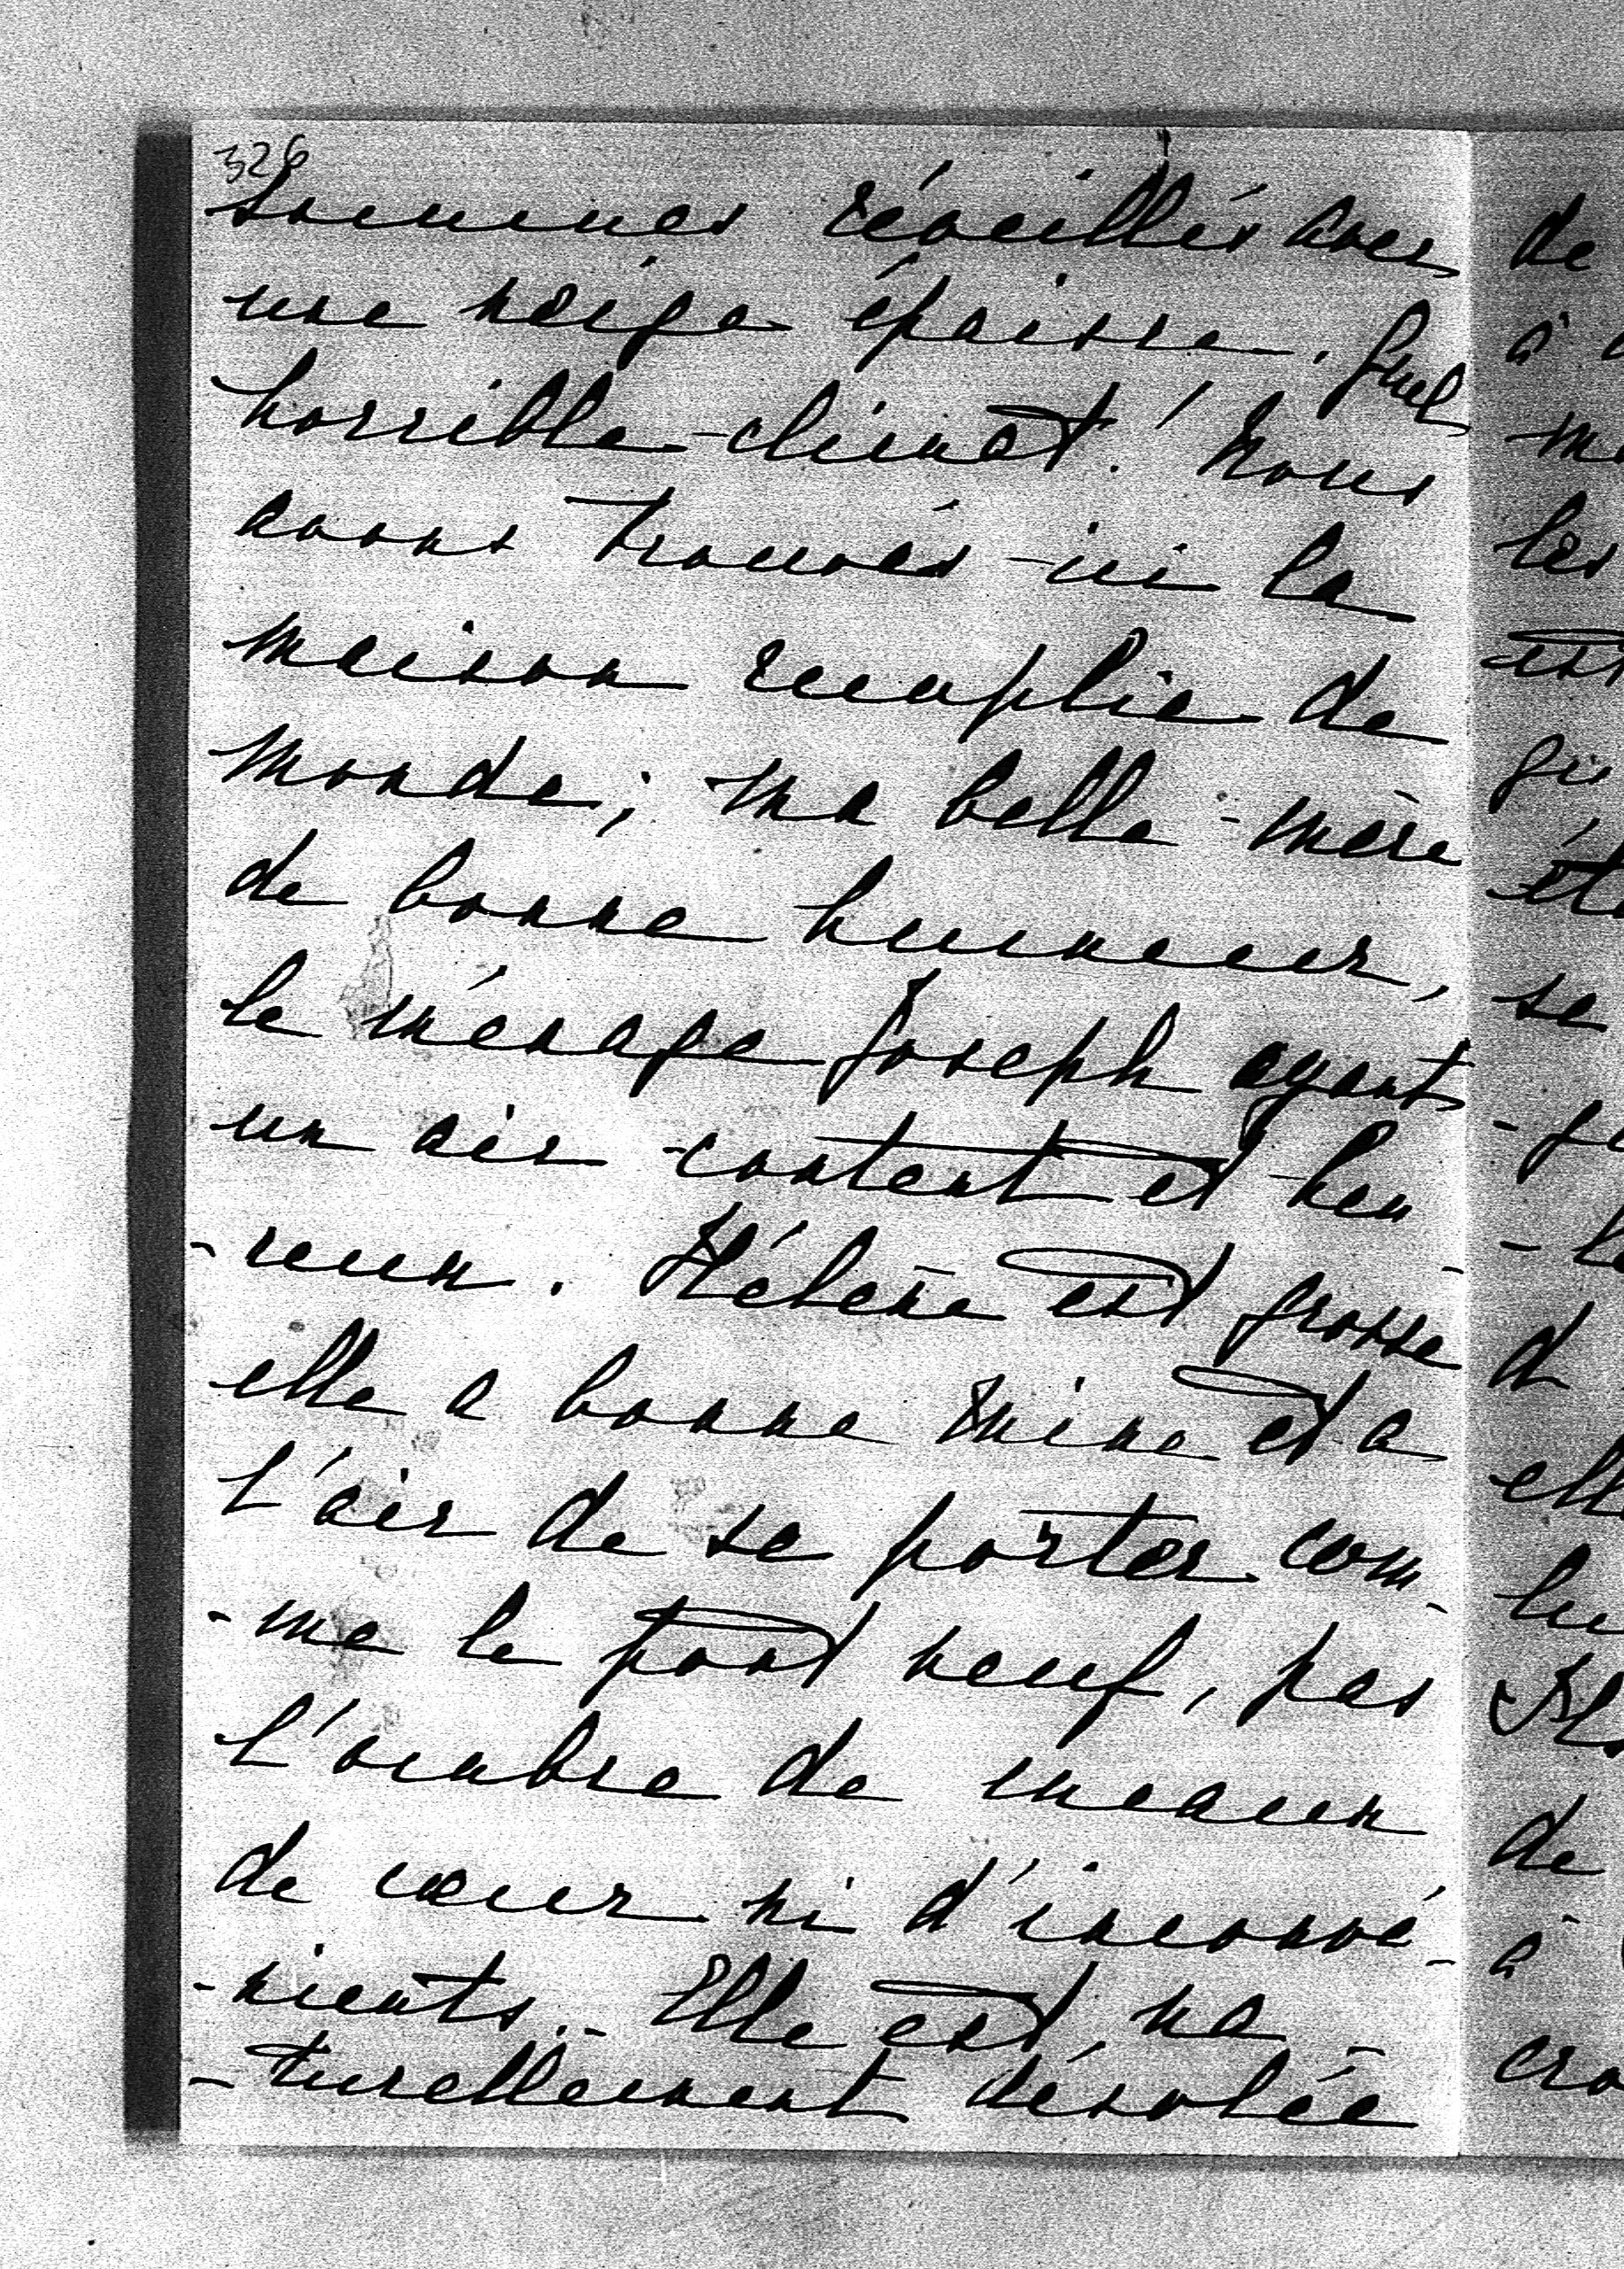 326
sommes réveillés avec
une neige épaisse. Quel
horrible climat! Nous
avons trouvés ici la
maison remplie de
monde; ma belle-mère
de bonne humeur,
le ménage Joseph ayant
un air content et heu-
-reux. Hélène est grosse
elle a bonne mine et a
l'air de se porter com-
-me le pont neuf, pas
l'ombre de maux
de cœur ni d'inconvé-
-nients. Elle est na-
-turellement désolée